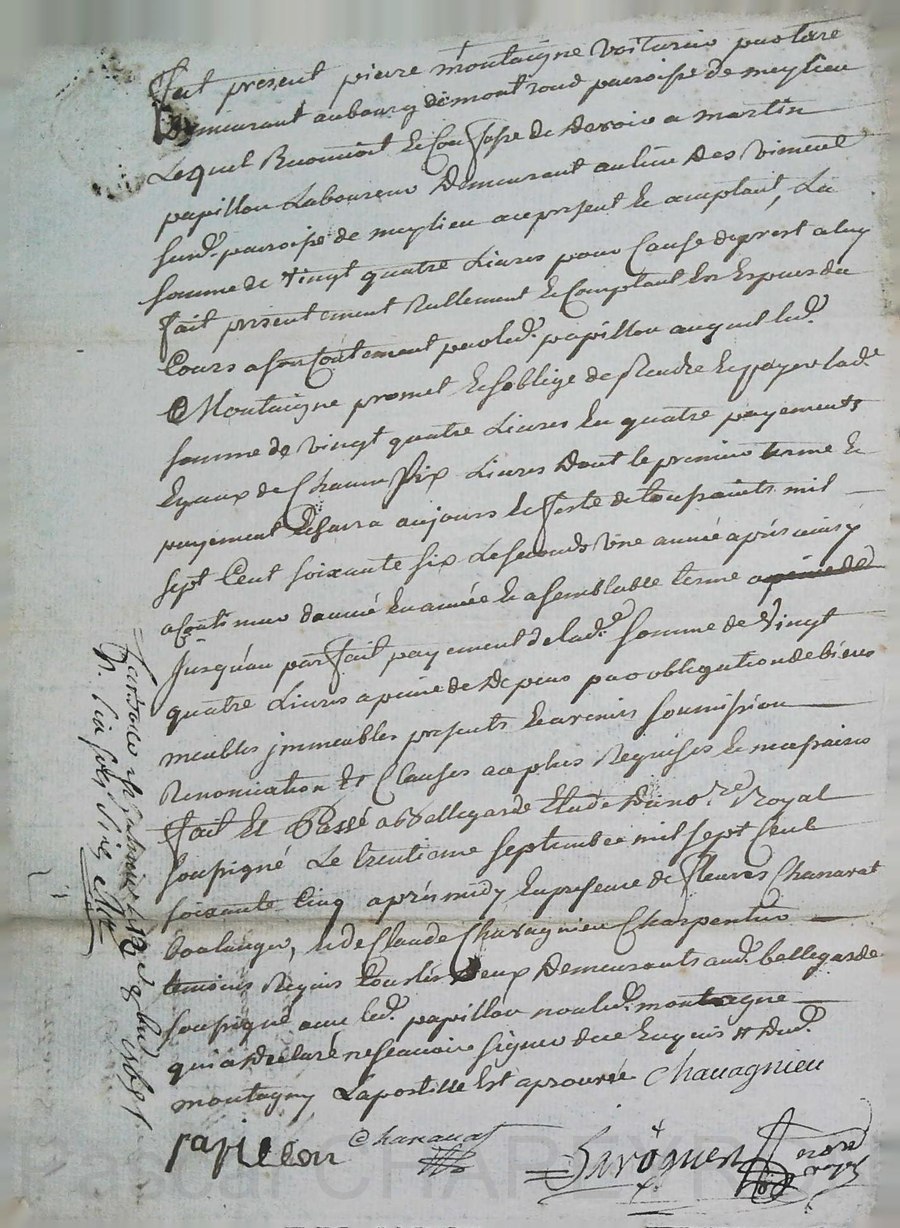 Fut présent pierre montaigne voiturier par terre
Demeurant au bourg de montrond parroisse de meylieu
Lequel Reconnoit et Confesse de devoir a martin
papillon Laboureur Demeurant au lieu des
surd. parroisse de meylieu ace present et aceptant, La
somme de vingt quatre Livres pour Cause de prest a luy
fait presentement Reellement et Comptant En Especes du
Cours a son Contentement par led. papillon auquel led.
Montaigne promet Et soblige de Rendre Et payer lad.e
somme de vingt quatre Livres En quatre payements
Egaux de Chacun six Livres Dont le premier terme Et
payement Echerra au jour Et feste de toussaints mil
sept Cent soixante six Le second Une année après ainsy
a Continuer d'année En année Et a semblable terme
Jusqu'au parfait payement de lad.e somme de Vingt
quatre Livres a peine de Depens par obligation de biens
meubles immeubles presents Et avenir soumission
Renonciation Et Clauses au plus Requises Et necessaires
Fait Et Passé a Bellegarde Etude Du no.re Royal
soussigné Le trentieme septembre mil sept Cent
soixante Cinq après midy En presence de fleurs Chanavat
boulanger, Et de Claude Chavagnieu Charpentier
temoins Requis tous les Deux Demeurants aud. bellegarde
soussigné avec led. papillon non led. montaigne
qui a Declaré ne scavoir signer de ce Enquis # Dud.
montagny Lapostille Est aprouvée Chavagnieu
papillon Chanavat
no.re royal
13 8bre 1765
Pascal CHAREYRE